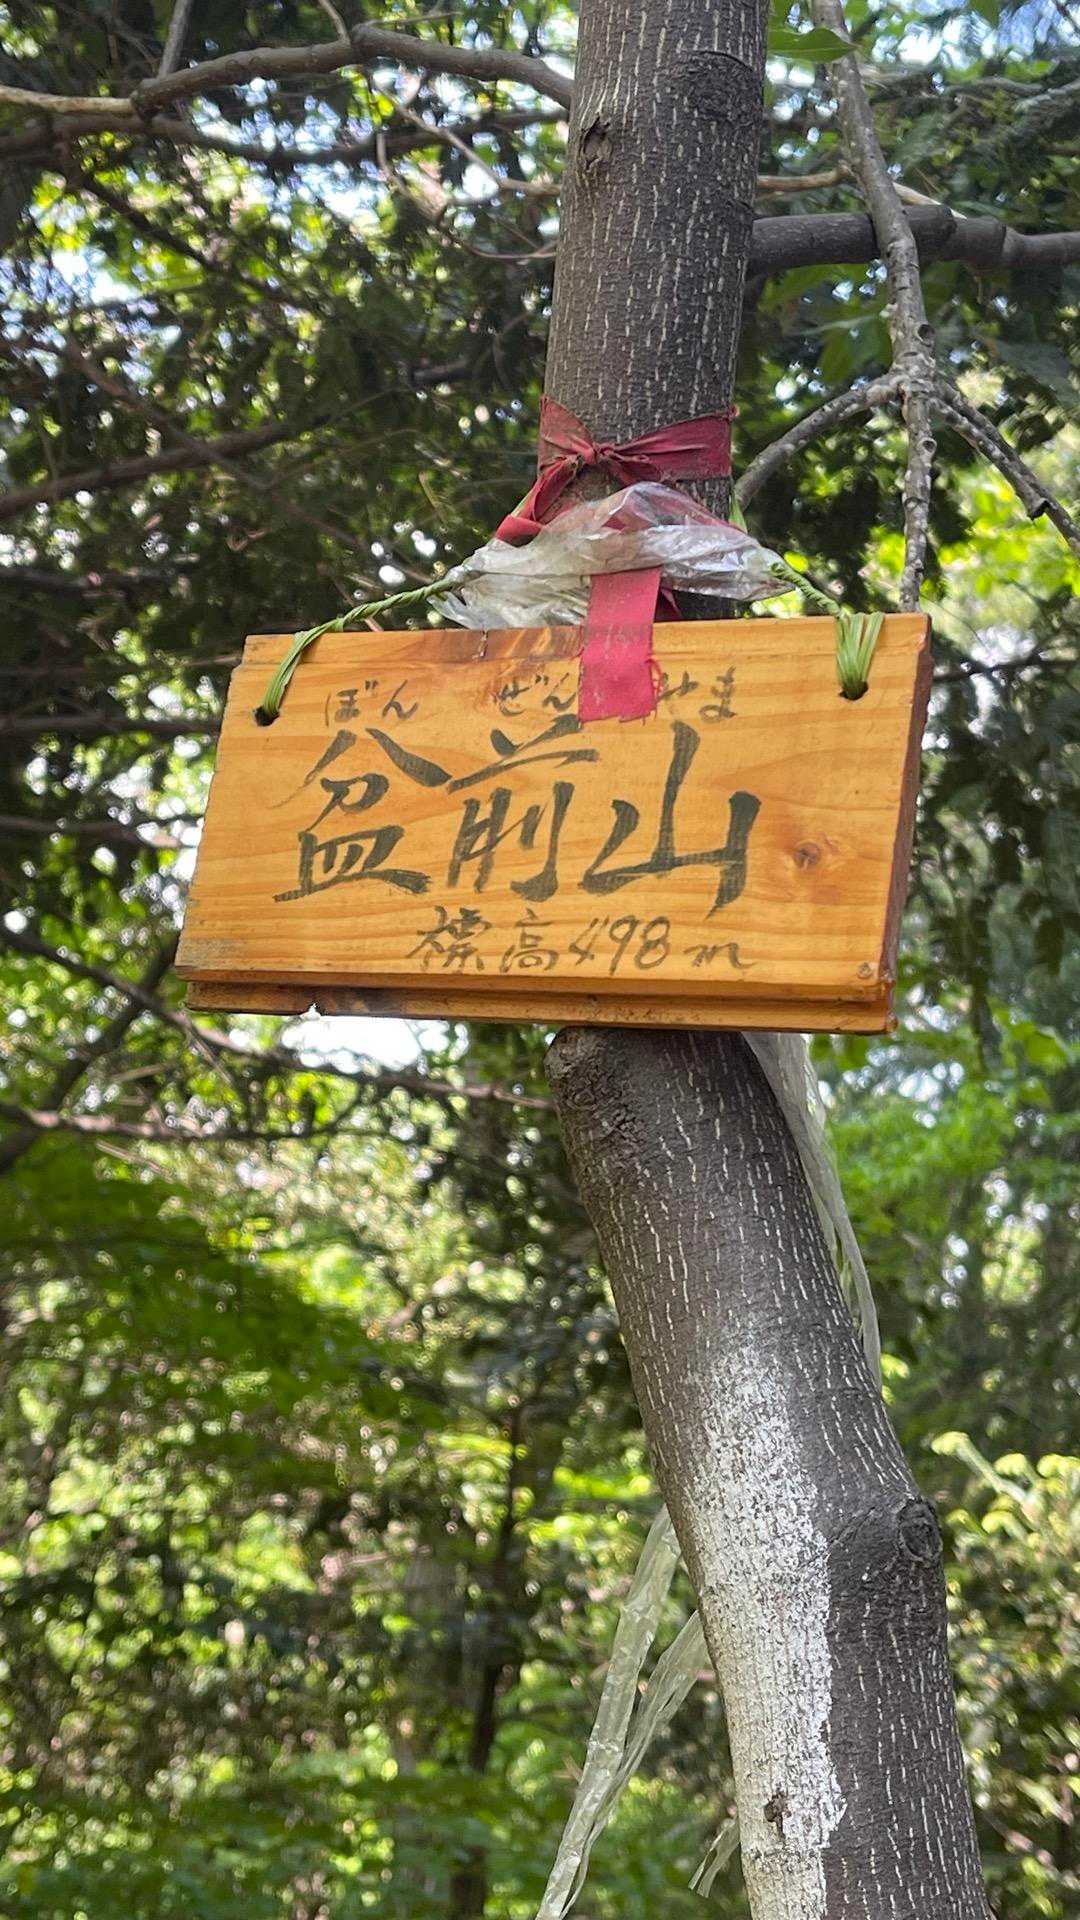 ぼん ぜん やま
盆前山
標高498m